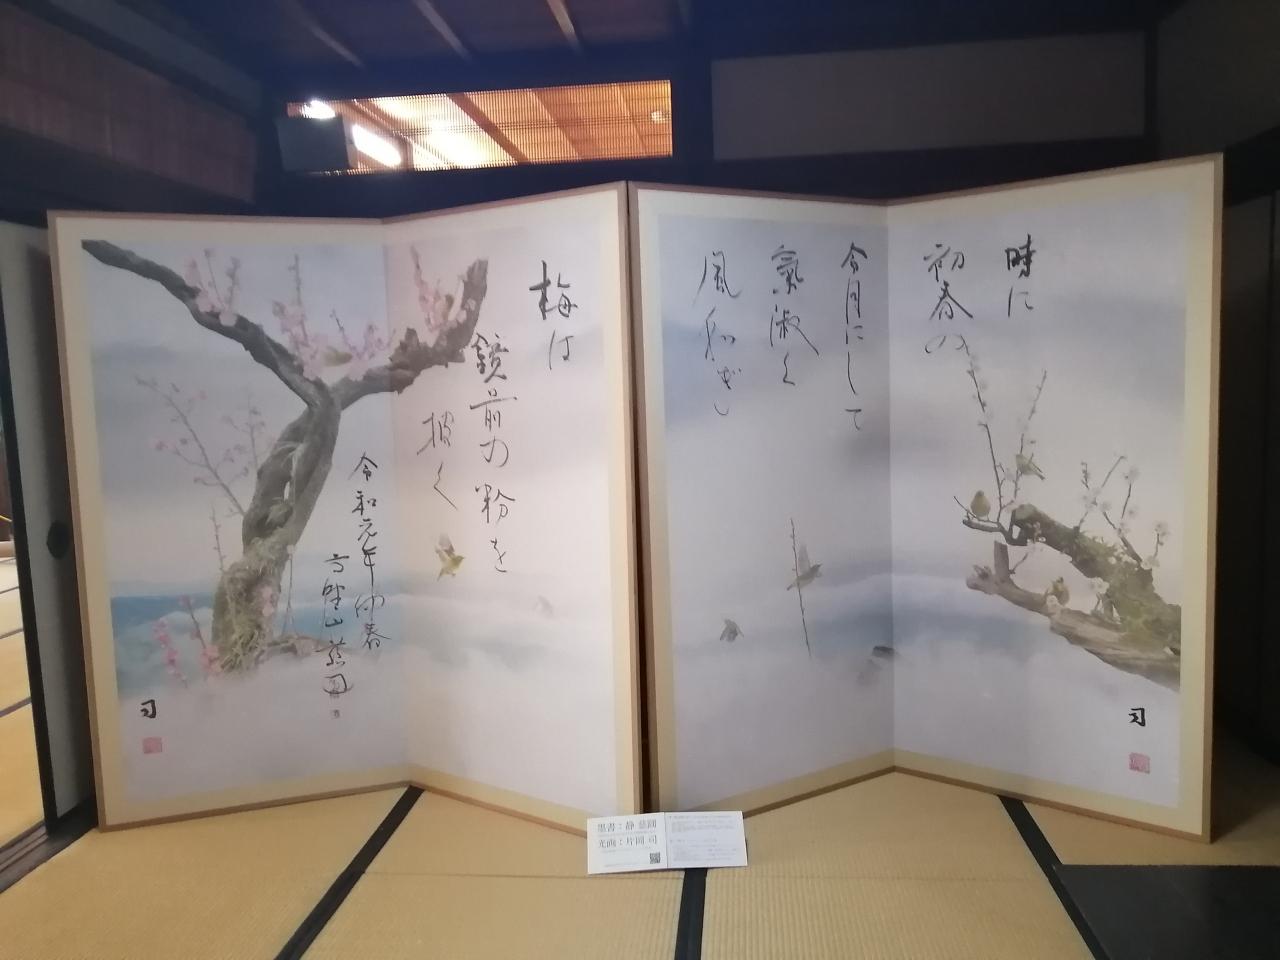 時に
初春の
令月にして
氣淑く
風和ぎ
梅は
鏡前の粉を
披く
令和元年仲春
高野山慈圓
司
司
墨書：静 慈圓
光画：片岡 司